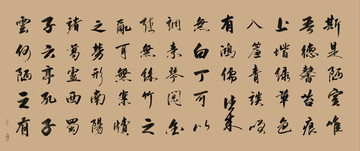 斯是陋室惟
吾德馨苔痕
上堦綠草色
入簾青談笑
有鴻儒往来
無白丁可以
調素琴閱金
經無絲竹之
亂耳無案牘
之勞形南陽
諸葛廬西蜀
子云亭孔子
雲何陋之有